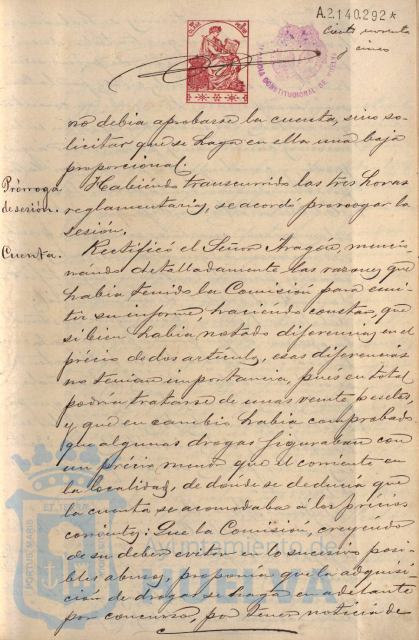 A.2140.292*
Ciento noventa
y cinco
ALCALDIA CONSTITUCIONAL DE HUELVA
no debia aprobarse la cuenta, sino so-
licitar que se haga en ella una baja
proporcional.
Prórroga
de sesión.
Habiendo transcurrido las tres horas
reglamentarias, se acordó prorrogar la
sesión.
Cuenta.
Rectificó el Señor Aragón, mencio-
nando detalladamente las razones que
habia tenido la Comisión para emi-
tir su informe haciendo constar, que
si bien habia notado diferencias en el
précio de dos artículos, esas diferencias
no tenian importancia, pués en total
podría tratarse de unas veinte pesetas,
y que en cambio habia comprobado
que algunas drogas figuraban con
un précio menor que el corriente en
la localidad, de donde se deducia que
la cuenta se acomodaba á los précios
corrientes: Que la Comisión, creyendo
de su deber evitar en lo sucesivo posi-
bles abusos, proponia que la adquisi-
ción de drogas se haga en adelante
por concurso, por tener noticia de
PORTUS MARIS
ET TERRAE
Ayuntamiento de
HUELVA